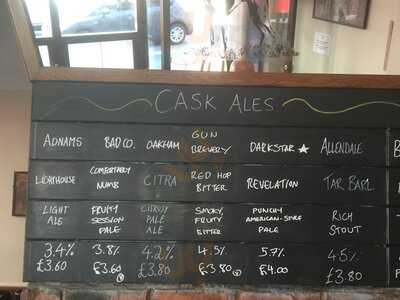 CASK ALES
ADNAMS BAD CO. OAKHAM GUN BREWERY DARKSTAR ★ ALLENDALE
LIGHTHOUSE COMFORTABLY NUMB CITRA RED HOP BITTER REVELATION TAR BARL
LIGHT ALE FRUITY SESSION PALE CITRUSY PALE ALE SMOKY, FRUITY BITTER PUNCHY AMERICAN-STYLE PALE RICH STOUT
3.4% 3.8% 4.2% 4.5% 5.7% 4.5%
£3.60 £3.60 £3.80 £3.80 £4.00 £3.80